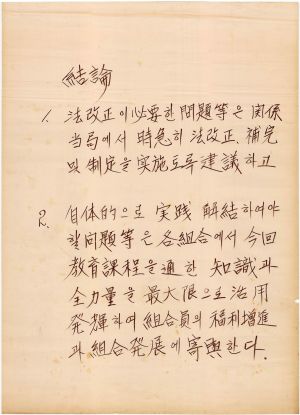 結論
1. 法改正이 必要한 問題等은 関係
当局에서 時急히 法改正, 補完
및 制定을 実施토록 建議하고
2. 自体的으로 実践 解結하여야
할 問題等은 各組合에서 今回
教育課程을 通한 知識과
全力量을 最大限으로 活用
発揮하여 組合員의 福利增進
과 組合発展에 寄與한다.